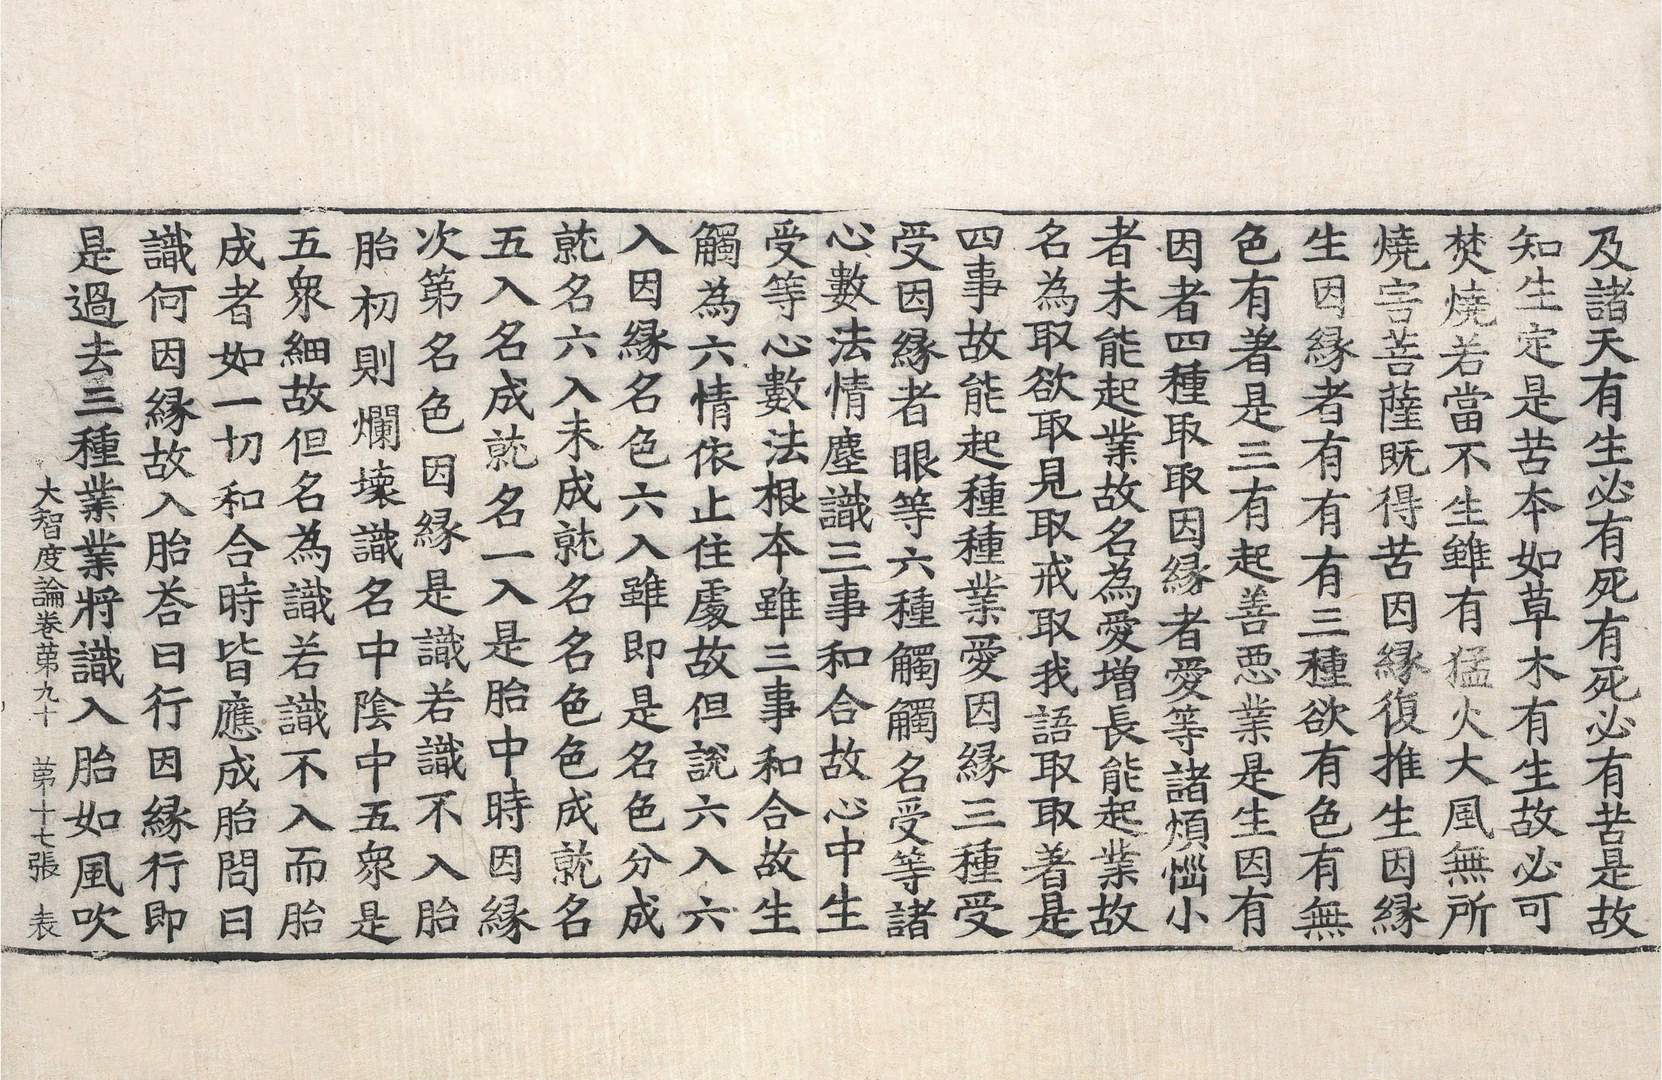 及諸天有生必有死有死必有苦是故
知生定是苦本如草木有生故必可
焚燒若當不生雖有猛火大風無所
燒害菩薩既得苦因緣復推生因緣
生因緣者有有有三種欲有色有無
色有著是三有起善惡業是生因有
因者四種取取因緣者愛等諸煩惱小
者未能起業故名為愛增長能起業故
名為取欲取見取戒取我語取取著是
四事故能起種種業愛因緣三種受
受因緣者眼等六種觸觸名受等諸
心數法情塵識三事和合故心中生
受等心數法根本雖三事和合故生
觸為六情依止住處故但說六入六
入因緣名色六入雖即是名色分成
就名六入未成就名名色色成就名
五入名成就名一入是胎中時因緣
次第名色因緣是識若識不入胎
胎初則爛壞識名中陰中五眾是
五眾細故但名為識若識不入而胎
成者如一切和合時皆應成胎問曰
識何因緣故入胎荅曰行因緣行即
是過去三種業業將識入胎如風吹
大智度論卷第九十 第十七張 表